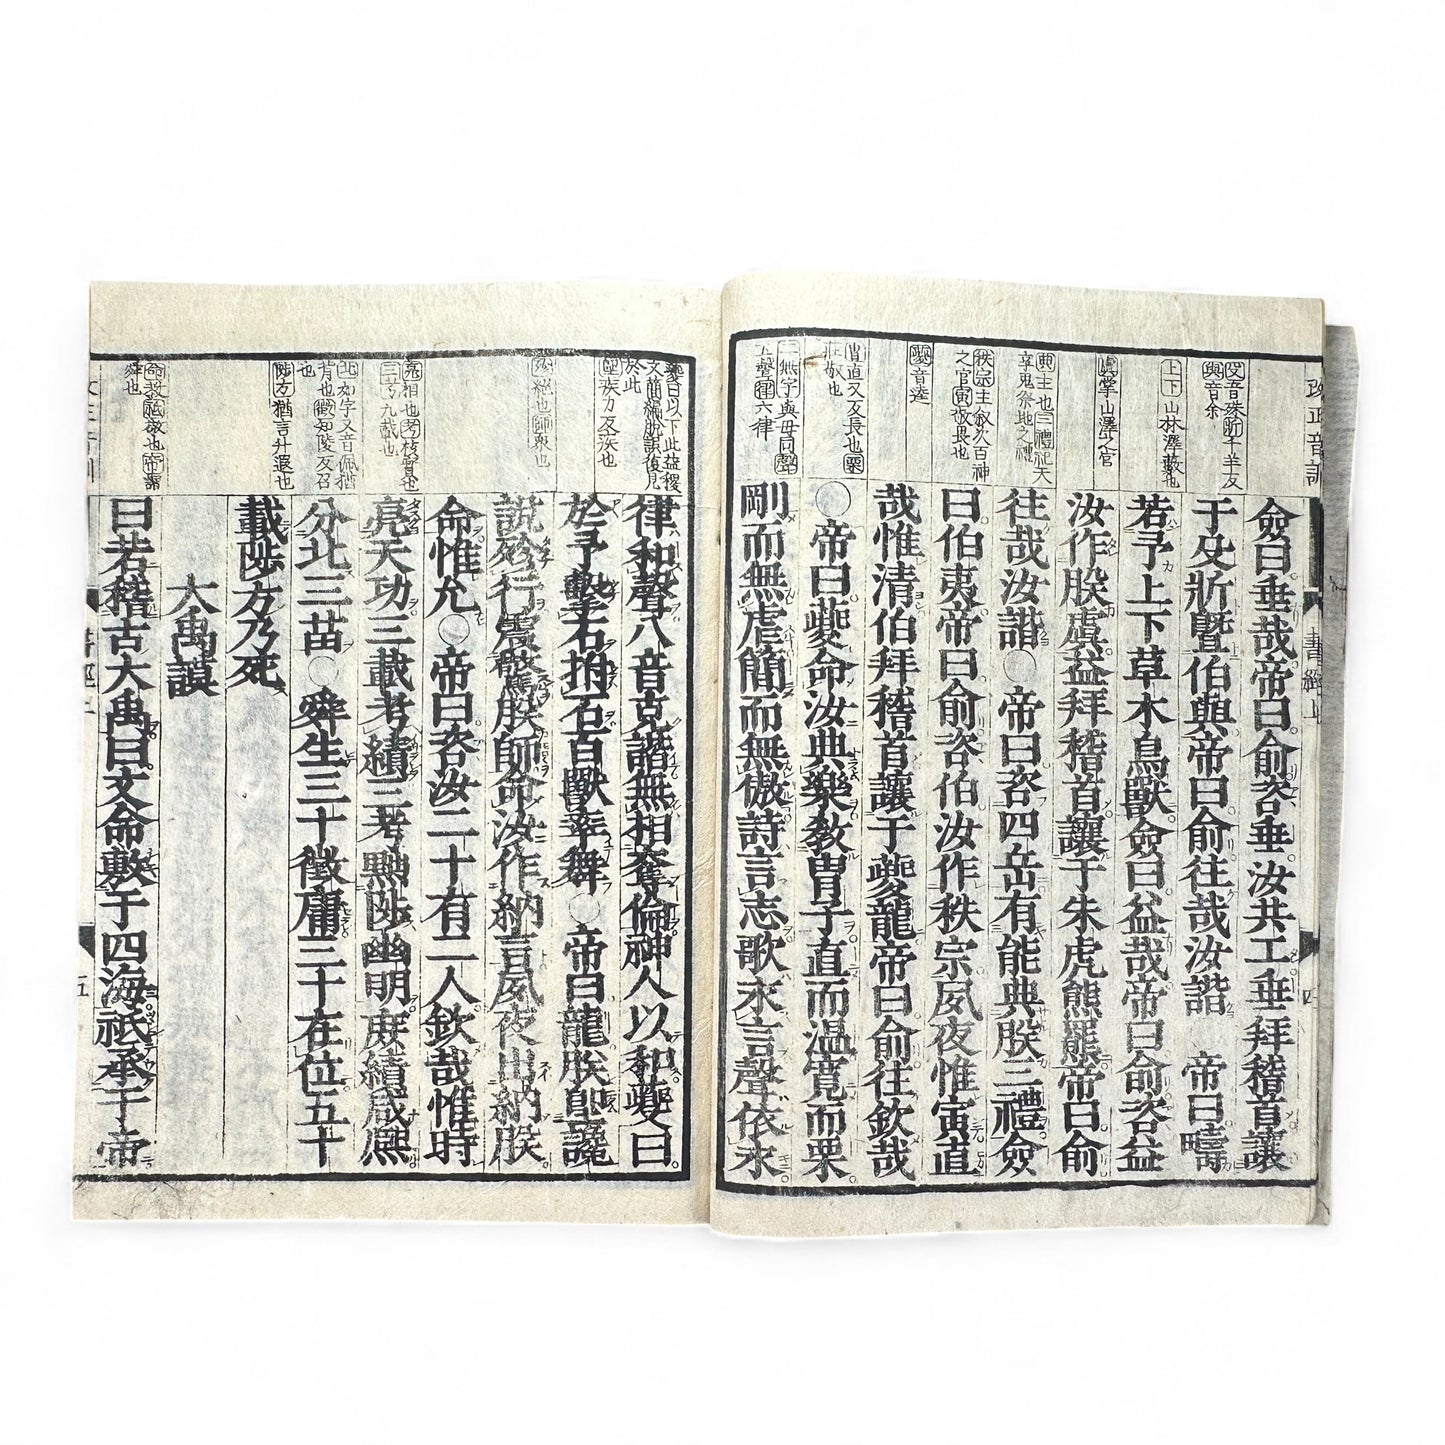 改正音訓
書經上
四
殳音殊斨千羊反
與音余
上下山林澤藪也
虞掌山澤之官
典主也三禮祀天
享鬼祭地之禮
秩宗主敘次百神
之官寅敬畏也
夔音逵
胄直又反長也栗
莊敬也
二無字與毋同聲
五聲律六律
僉曰垂哉帝曰俞咨垂汝共工垂拜稽首讓
于殳斨曁伯與帝曰俞往哉汝諧 帝曰疇
若予上下草木鳥獸僉曰益哉帝曰俞咨益
汝作朕虞益拜稽首讓于朱虎熊羆帝曰俞
往哉汝諧○帝曰咨四岳有能典朕三禮僉
曰伯夷帝曰俞咨伯汝作秩宗夙夜惟寅直
哉惟清伯拜稽首讓于夔龍帝曰俞往欽哉
○帝曰夔命汝典樂教胄子直而温寛而栗
剛而無虐簡而無傲詩言志歌永言聲依永
夔曰以下此益稷
文簡編脫誤復見
於此
堲疾力反疾也
殄絶也師衆也
亮相也考核實也
三考九載也
北如字又音佩猶
背也徵知陵反召
也
陟方猶言升遐也
命教祗敬也帝謂
舜也
律和聲八音克諧無相奪倫神人以和夔曰
於予擊石拊石百獸率舞○帝曰龍朕堲讒
說殄行震驚朕師命汝作納言夙夜出納朕
命惟允○帝曰咨汝二十有二人欽哉惟時
亮天功三載考績三考黜陟幽明庶績咸熙
分北三苗○舜生三十徵庸三十在位五十
載陟方乃死
大禹謨
曰若稽古大禹曰文命敷于四海祗承于帝
五